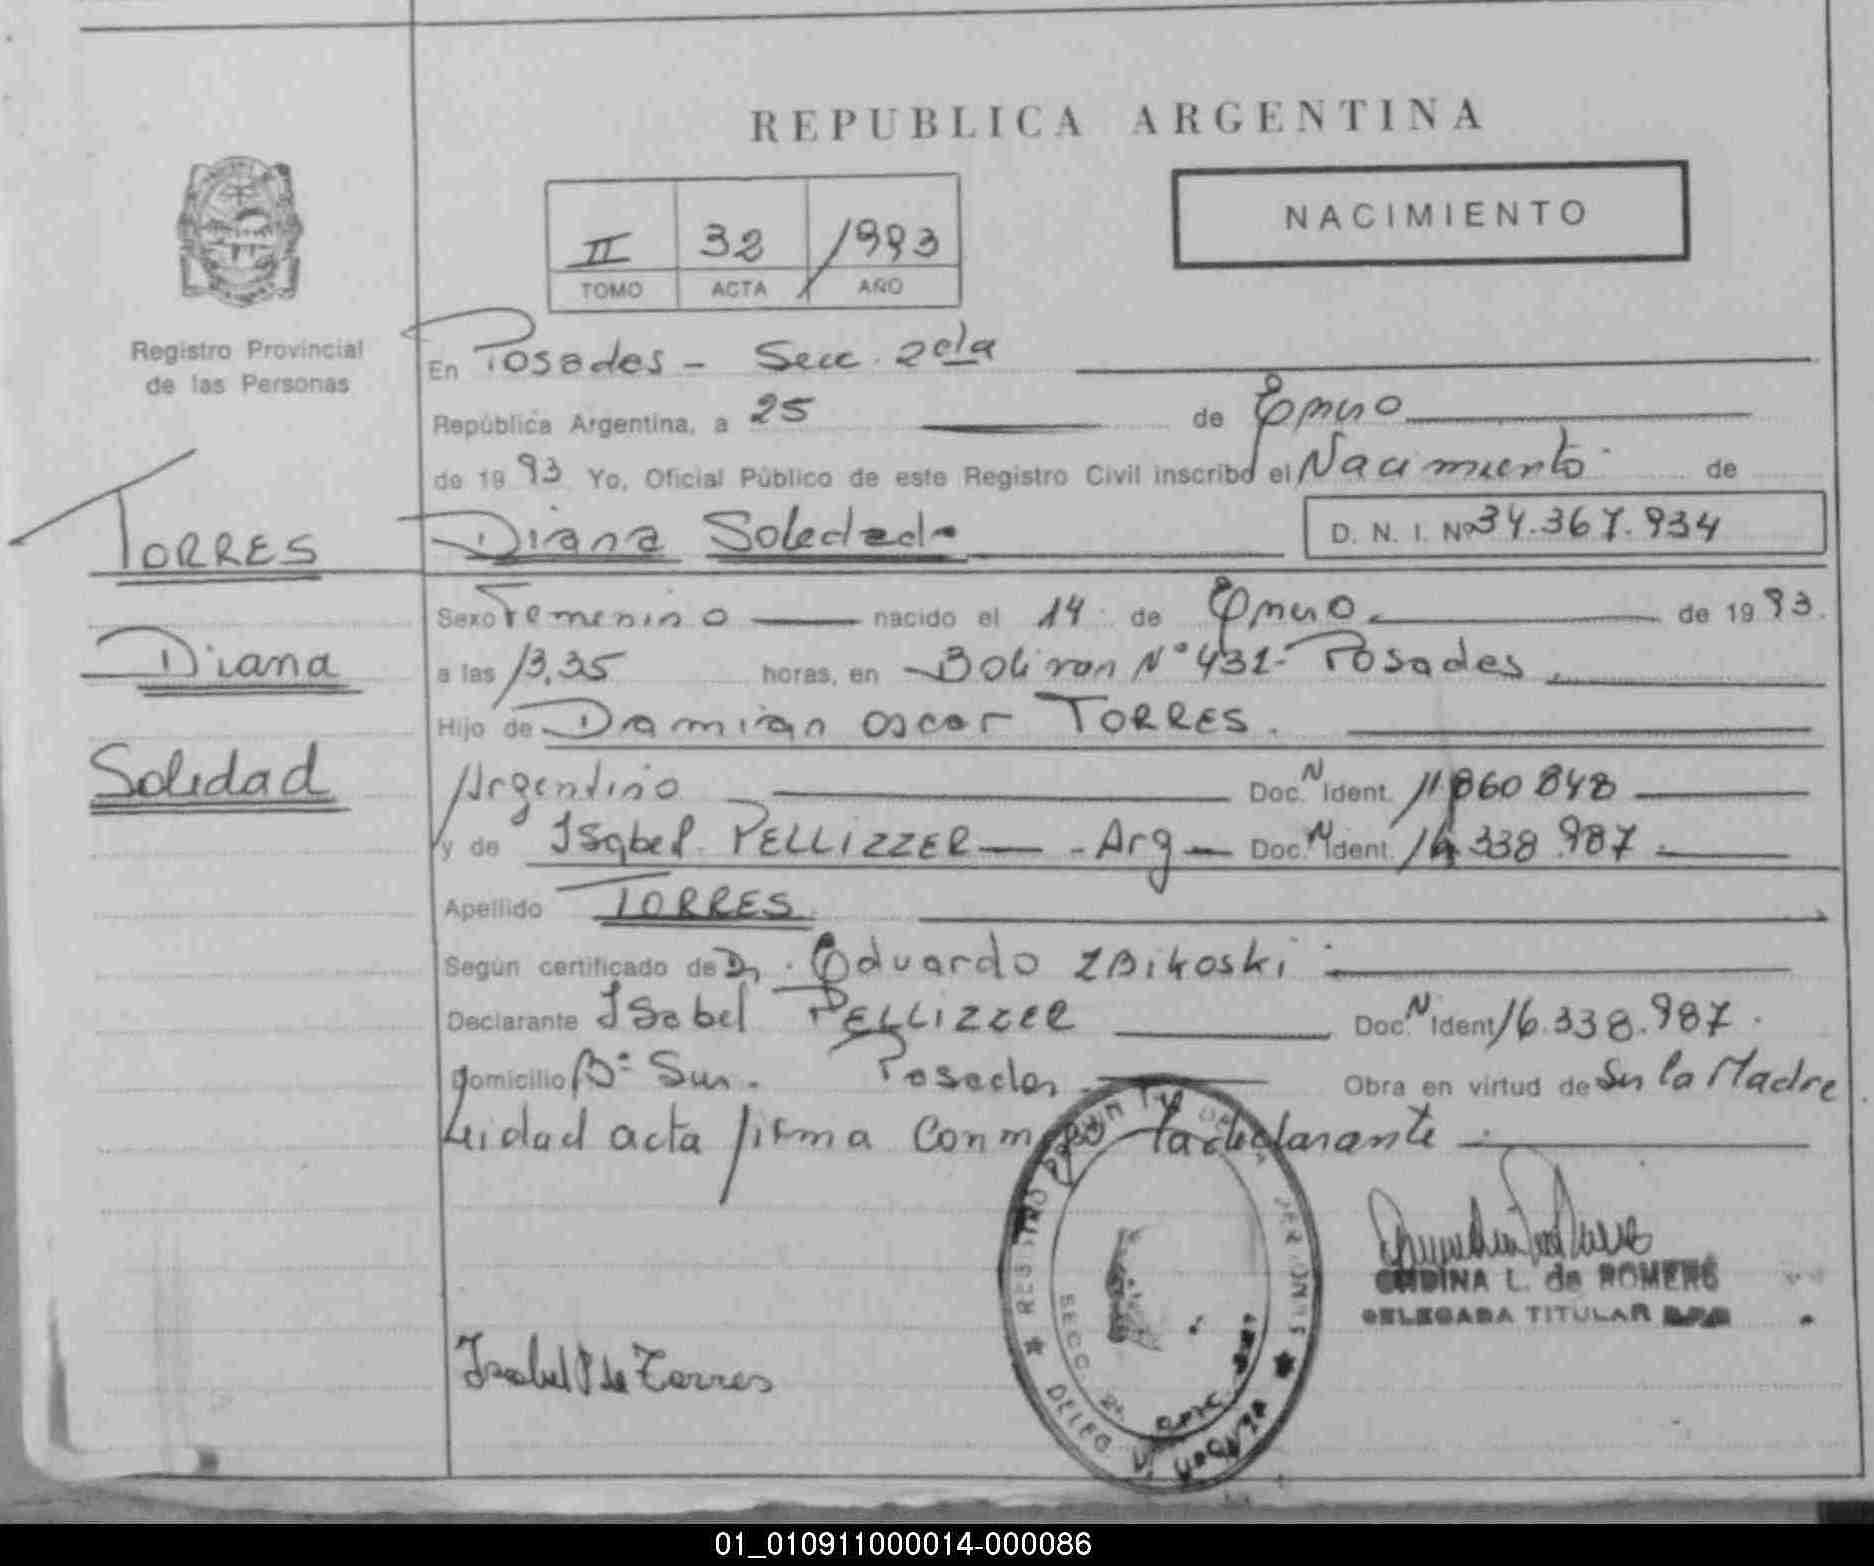 REPUBLICA ARGENTINA
NACIMIENTO
II 32 1993
TOMO ACTA AÑO
Registro Provincial
de las Personas
En Posadas - Secc. 2da
República Argentina, a 25 de Enero
de 1993 Yo, Oficial Público de este Registro Civil inscribo el Nacimiento de
TORRES
Diana Soledad
D. N. I. Nº 34.367.934
Sexo Femenino nacido el 14 de Enero de 1993.
Diana
a las 13,35 horas, en Bolivar Nº 431- Posadas
Hijo de Damian Oscar TORRES.
Soledad
Argentino Doc. N Ident. 11.860 848
y de Isabel PELLIZZER - Arg - Doc. N Ident. 16 338.987
Apellido TORRES
Según certificado de Dr. Eduardo ZBIKOSKI
Declarante Isabel PELLIZZER Doc. N Ident 16.338.987.
Domicilio Bº Sur. Posadas Obra en virtud de Ser la Madre
Leida el acta firma conmigo la declarante
ONDINA L. de ROMERO
DELEGADA TITULAR
Isabel P de Torres
REGISTRO PROVINCIAL DE LAS PERSONAS
SECC. 2ª
DELEG
01_010911000014-000086